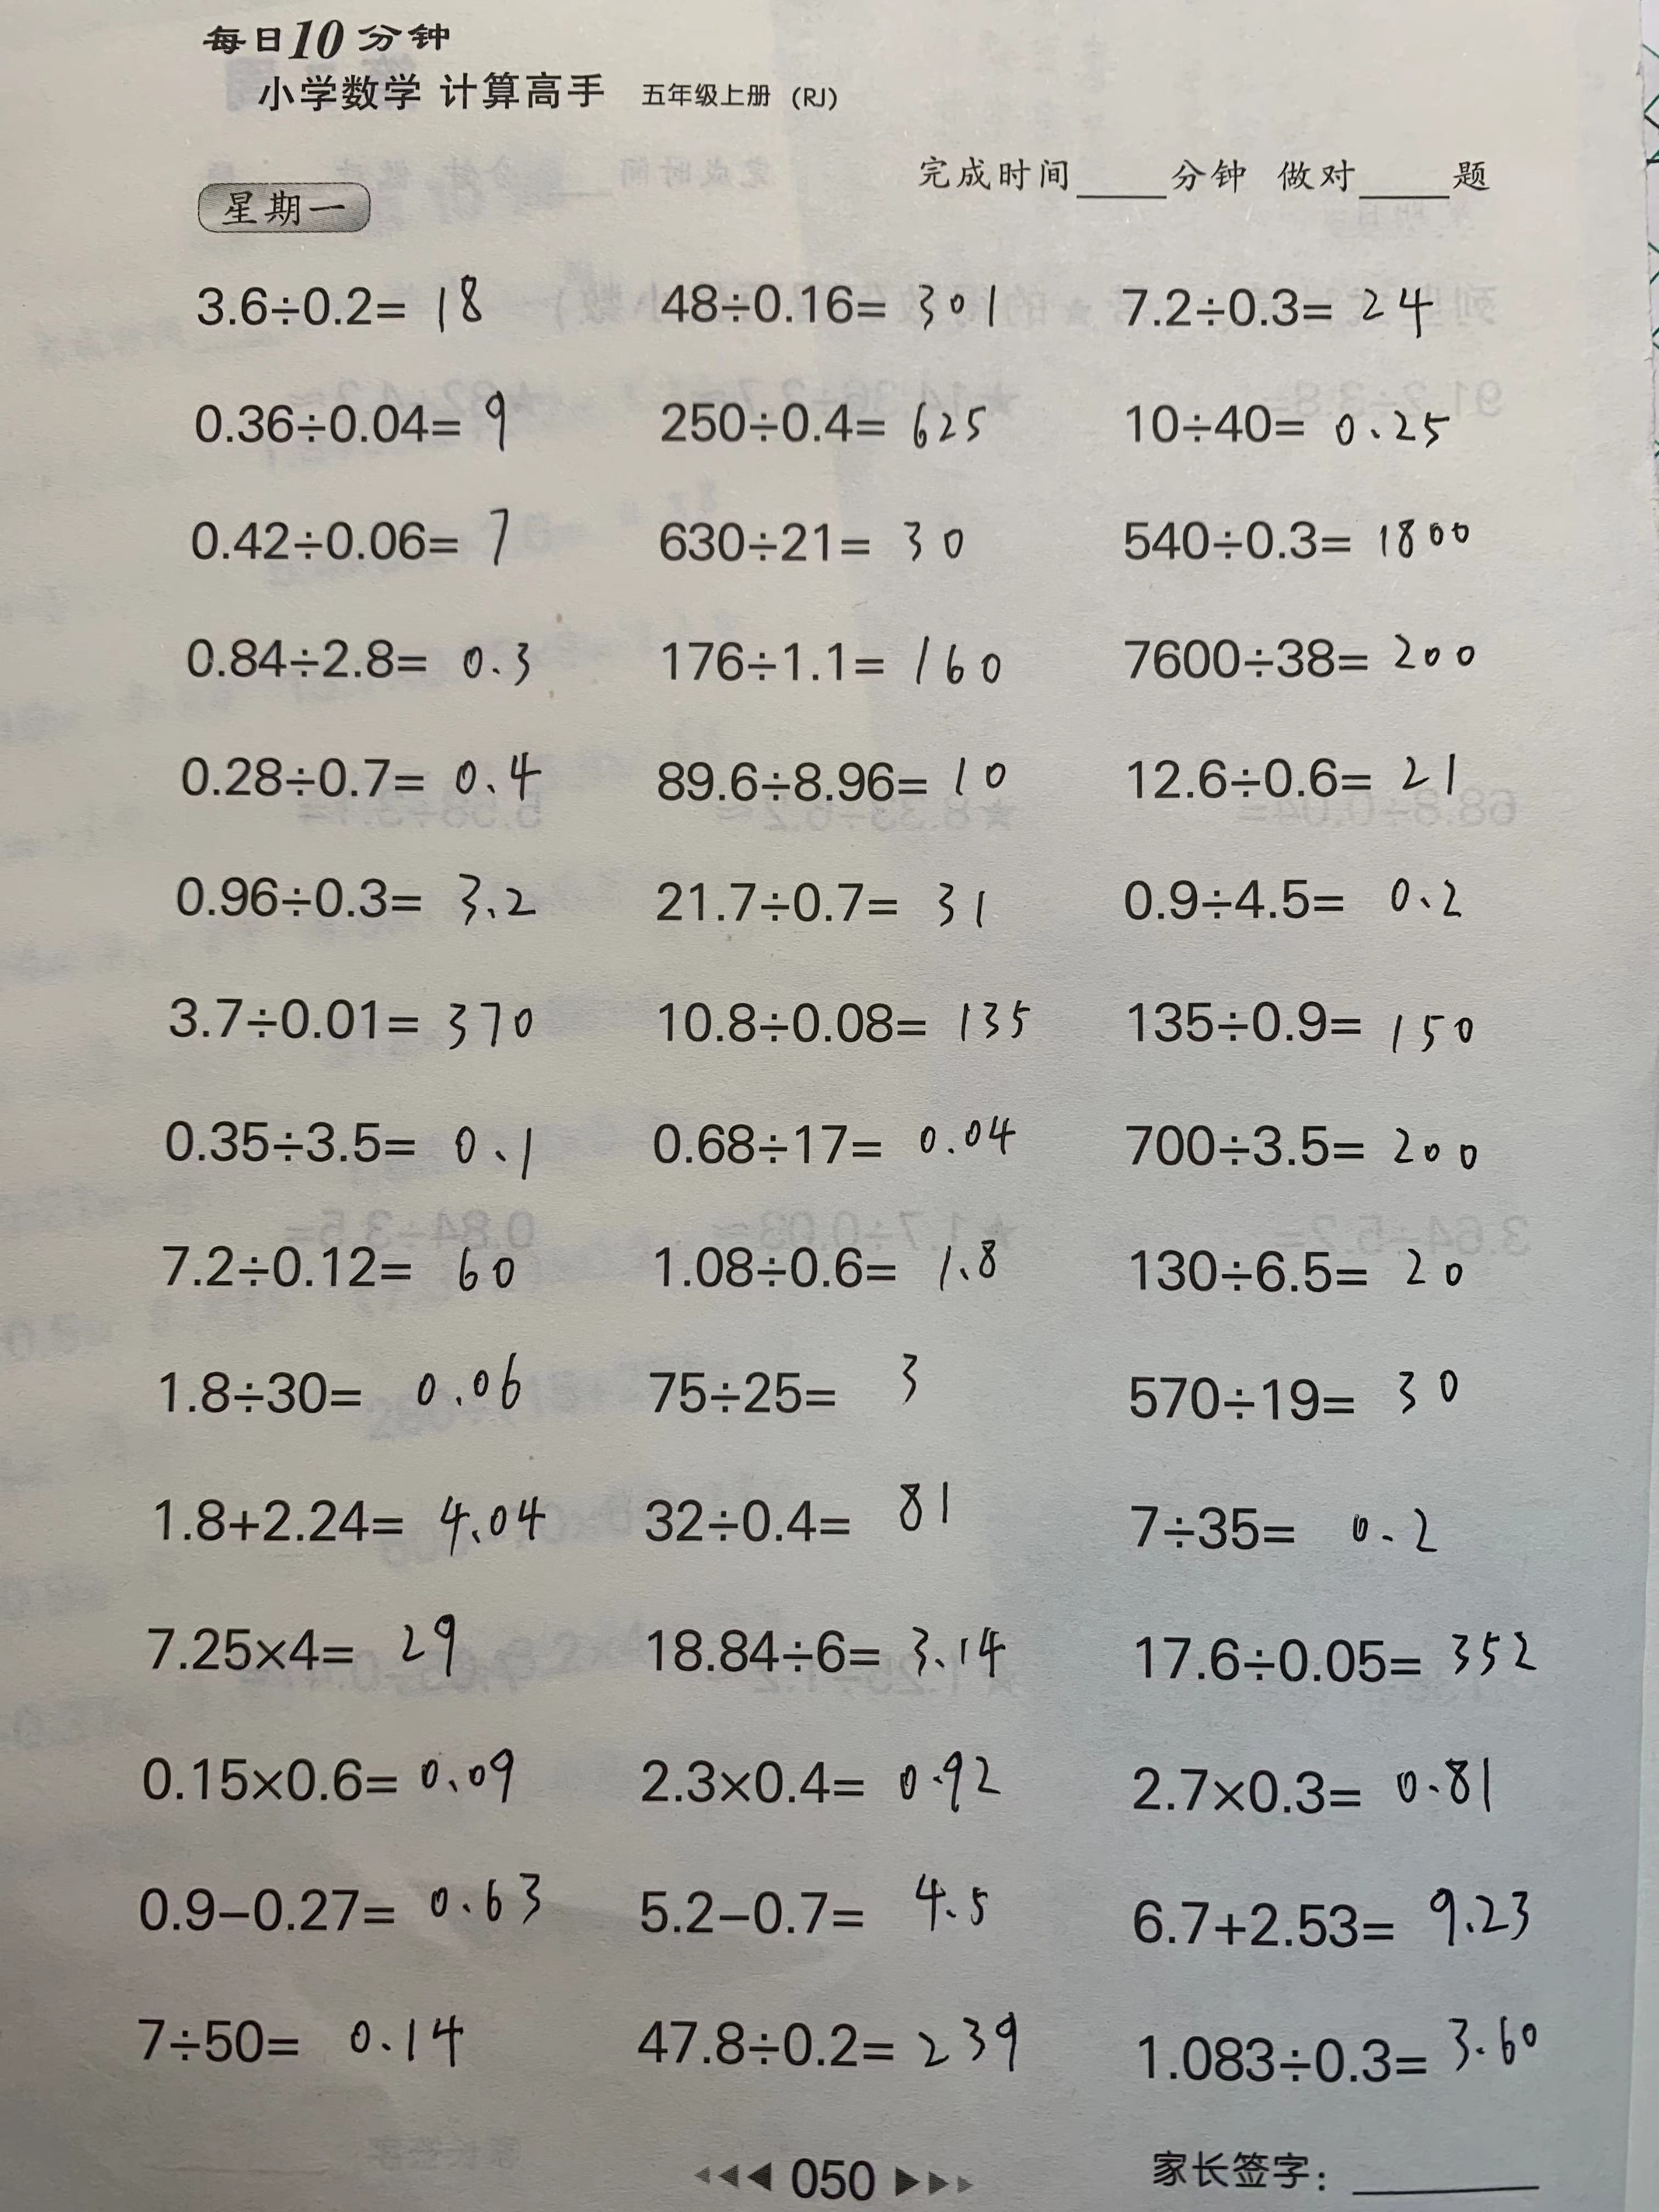 每日10分钟
小学数学 计算高手 五年级上册 (RJ)
完成时间_____分钟 做对_____题
星期一
3.6÷0.2= 18 48÷0.16= 301 7.2÷0.3= 24
0.36÷0.04= 9 250÷0.4= 625 10÷40= 0.25
0.42÷0.06= 7 630÷21= 30 540÷0.3= 1800
0.84÷2.8= 0.3 176÷1.1= 160 7600÷38= 200
0.28÷0.7= 0.4 89.6÷8.96= 10 12.6÷0.6= 21
0.96÷0.3= 3.2 21.7÷0.7= 31 0.9÷4.5= 0.2
3.7÷0.01= 370 10.8÷0.08= 135 135÷0.9= 150
0.35÷3.5= 0.1 0.68÷17= 0.04 700÷3.5= 200
7.2÷0.12= 60 1.08÷0.6= 1.8 130÷6.5= 20
1.8÷30= 0.06 75÷25= 3 570÷19= 30
1.8+2.24= 4.04 32÷0.4= 81 7÷35= 0.2
7.25×4= 29 18.84÷6= 3.14 17.6÷0.05= 352
0.15×0.6= 0.09 2.3×0.4= 0.92 2.7×0.3= 0.81
0.9−0.27= 0.63 5.2−0.7= 4.5 6.7+2.53= 9.23
7÷50= 0.14 47.8÷0.2= 239 1.083÷0.3= 3.60
050
家长签字：_____